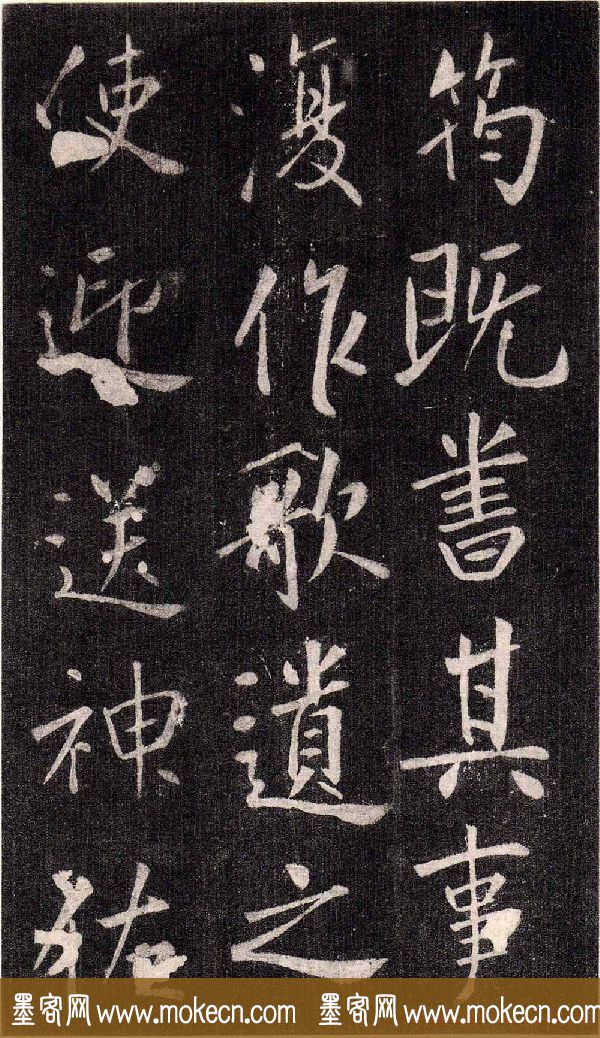 筠既書其事
復作歌遺之
使迎送神
墨客网 www.mokecn.com 墨客网 www.mokecn.com